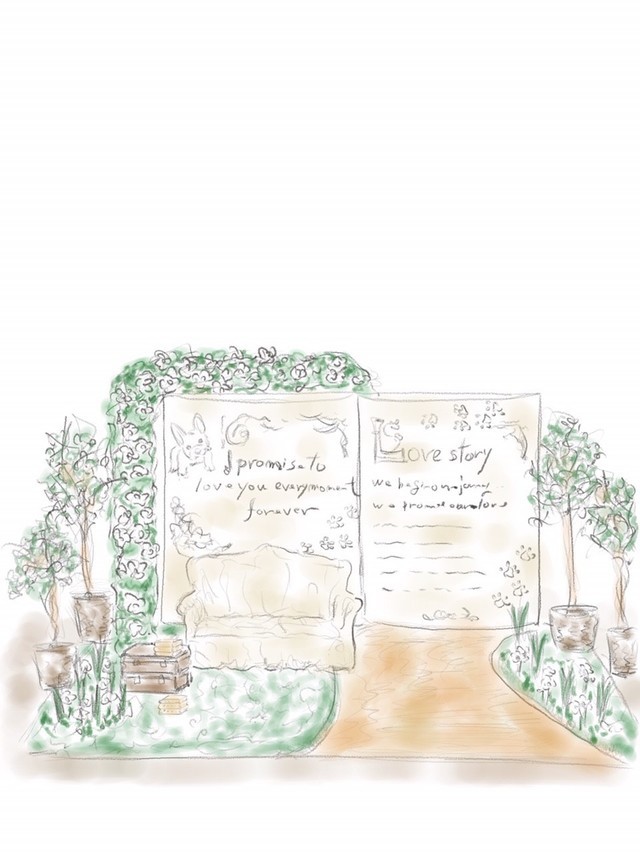 I promise to
love you everymoment
forever
Love story
we begin our jorney
we promise our love